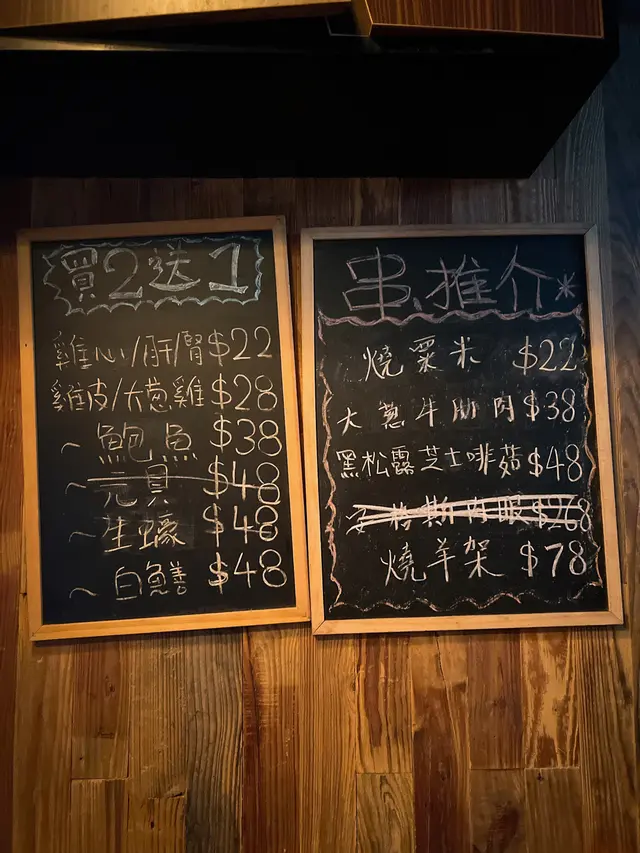 買2送1
雞心/肝/腎$22
雞皮/大蔥雞$28
~ 鮑魚 $38
~ 元貝 $48
~ 生蠔 $48
~ 白鱔 $48
串推介*
燒粟米 $22
大蔥牛肋肉$38
黑松露芝士啡菇$48
安格斯肉眼$268
燒羊架 $78